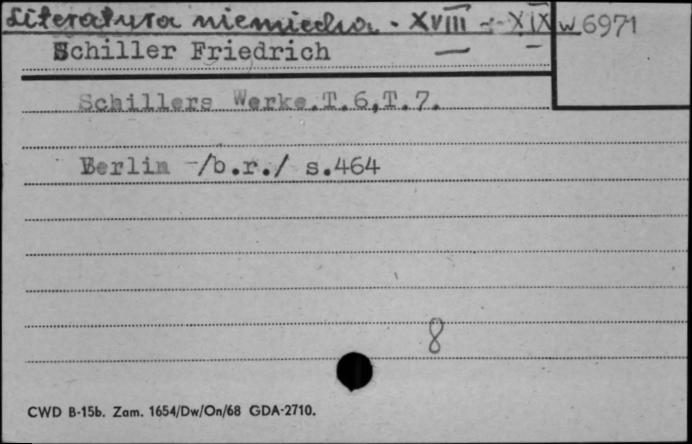 Literatura niemiecka - XVIII - XIX w 6971
Schiller Friedrich
Schillers Werke.T.6,T.7.
Berlin -/b.r./ s.464
8
CWD B-15b. Zam. 1654/Dw/On/68 GDA-2710.